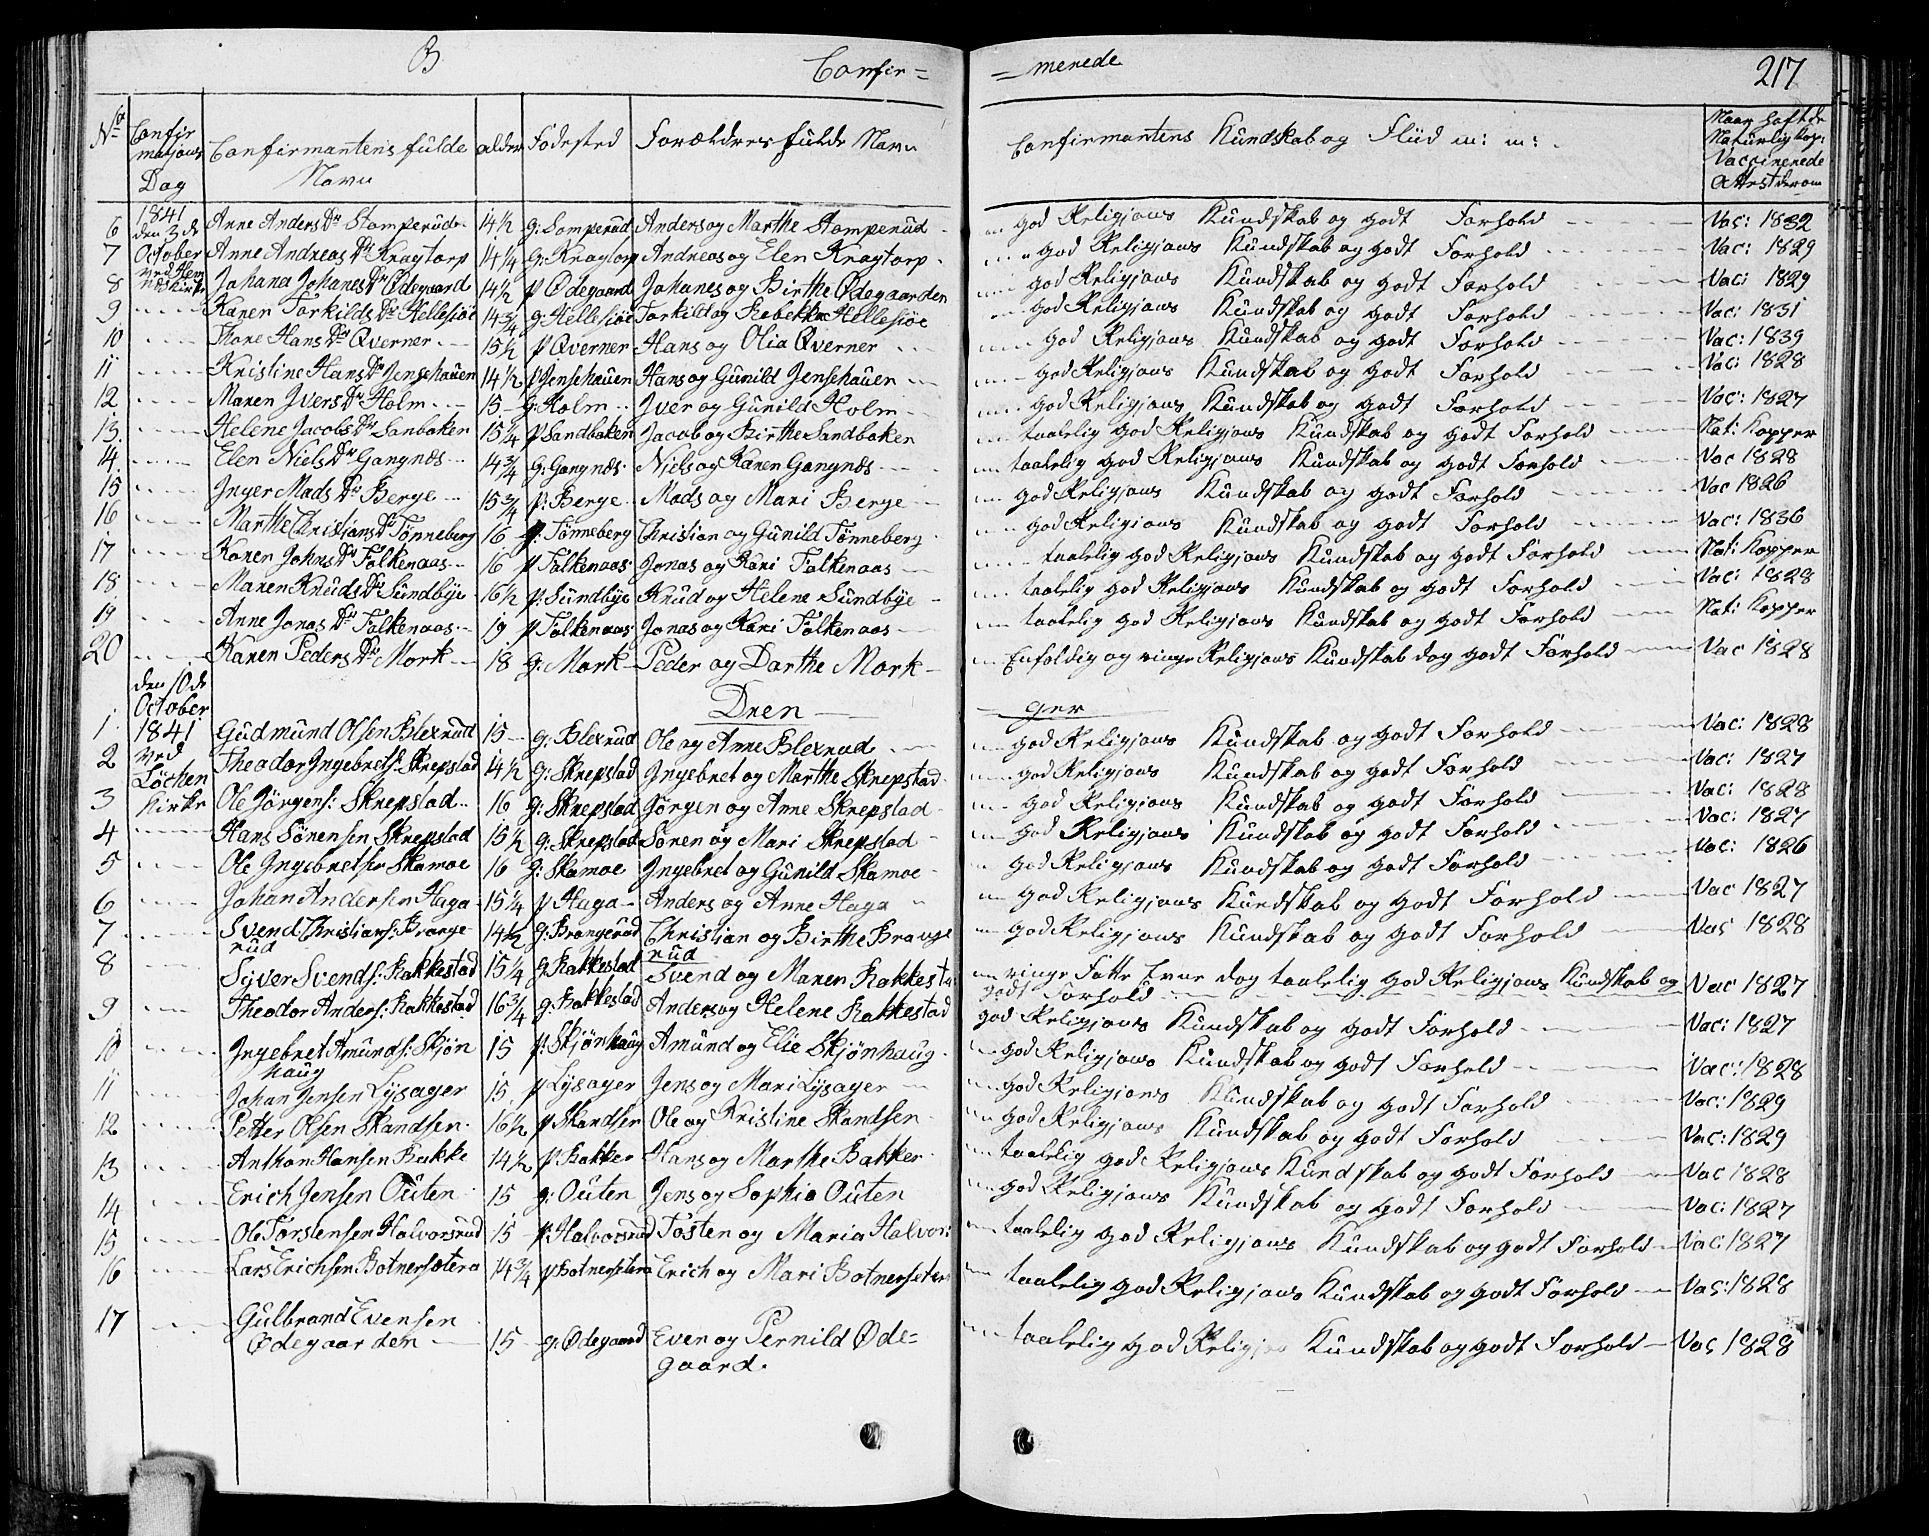 B Confir= =merede 217
No Confirmasjons Dag Confirmantens fulde Navn alder Fødested Forældres fulde Navn Confirmantens Kundskab og Fliid m: m: Naar haft de Naturlig Kop: Vaccinerede Attest derom
6 1841 den 3de Anne Anders Dr Stomperud 14½ g: Somperud Anders og Marthe Stomperud god Religjons Kundskab og godt Forhold Vac: 1832
7 October Anne Andreas Dr Kragtorp 14¼ g: Kragtorp Andreas og Elen Kragtorp god Religjons Kundskab og godt Forhold Vac: 1829
8 ved Hemnæs Kirke Johana Johanes Dr Ødegaard 14½ p Ødegaard Johanes og Birthe Ødegaarden god Religjons Kundskab og godt Forhold Vac: 1829
9 Karen Torkilds Dr Hellesiøe 14¾ g Hellesiøe Torkild og Rebekka Hellesiøe god Religjons Kundskab og godt Forhold Vac: 1831
10 Thore Hans Dr Qverner 15½ p Qverner Hans og Olia Qverner god Religjons Kundskab og godt Forhold Vac: 1839
11 Kristine Hans Dr Jensehauen 14½ p Jensehauen Hans og Gunild Jensehauen god Religjons Kundskab og godt Forhold Vac: 1828
12 Maren Ivers Dr Holm 15 g: Holm Iver og Gunild Holm god Religjons Kundskab og godt Forhold Vac: 1827
13 Helene Jacobs Dr Sanbaken 15¼ p Sandbaken Jacob og Birthe Sandbaken taalelig god Religjons Kundskab og godt Forhold Nat: Kopper
14 Elen Niels Dr Gangnæs 14¾ g: Gangnæs Niels og Karen Gangnæs taalelig god Religjons Kundskab og godt Forhold Vac 1828
15 Inger Mads Dr Berge 15¾ p: Berge Mads og Mari Berge god Religjons Kundskab og godt Forhold Vac 1826
16 Marthe Christians Dr Tønneberg 16 p: Tønneberg Christian og Gunild Tønneberg god Religjons Kundskab og godt Forhold Vac: 1836
17 Karen Johns Dr Falkenaas 16 p Falkenaas Jonas og Kari Falkenaas taalelig god Religjons Kundskab og godt Forhold Nat: Kopper
18 Maren Knuds Dr Sundbye 16½ p: Sundbye Knud og Helene Sundbye taalelig god Religjons Kundskab og godt Forhold Vac: 1828
19 Anne Jonas Dr Falkenaas 19 p Falkenaas Jonas og Kari Falkenaas taalelig god Religjons Kundskab og godt Forhold Nat: Kopper
20 Karen Peders Dr Mork 18 g: Mork Peder og Darthe Mork Enfoldig og ringe Religjons Kundskab dog godt Forhold Vac 1828
den 10de October Dren ger
1 1841 Gudmund Olsen Blexrud 15 g: Blexrud Ole og Anne Blexrud god Religjons Kundskab og godt Forhold Vac: 1828
2 ved Theodor Ingebrets: Skrepstad 14½ g: Skrepstad Ingebret og Marthe Skrepstad god Religjons Kundskab og godt Forhold Vac: 1827
3 Løchen Kirke Ole Jørgens: Skrepstad 16 g: Skrepstad Jørgen og Anne Skrepstad god Religjons Kundskab og godt Forhold Vac: 1828
4 Hans Sørensen Skrepstad 15½ g: Skrepstad Søren og Mari Skrepstad god Religjons Kundskab og godt Forhold Vac: 1827
5 Ole Ingebretsen Skamoe 16 g: Skamoe Ingebret og Gunild Skamoe god Religjons Kundskab og godt Forhold Vac: 1826
6 Johan Andersen Haga 15¼ p Haga Anders og Anne Haga god Religjons Kundskab og godt Forhold Vac 1827
7 Svend Christians: Brangerud 14½ g: Brangerud Christian og Birthe Brangerud god Religjons Kundskab og godt Forhold Vac 1828
8 Syver Svends: Rakkestad 15¼ g Rakkestad Svend og Maren Rakkesta ringe Fatte Evne dog taalelig god Religjons Kundskab og godt Forhold Vac 1827
9 Theodor Anders: Rakkestad 16¾ g: Rakkestad Anders og Helene Rakkestad god Religjons Kundskab og godt Forhold Vac: 1827
10 Ingebret Amunds: Skjønhaug 15 p: Skjønhaug Amund og Elie Skjønhaug god Religjons Kundskab og godt Forhold Vac: 1828
11 Johan Jensen Lysager 15 p Lysager Jens og Mari Lysager god Religjons Kundskab og godt Forhold Vac: 1829
12 Petter Olsen Skandsen 16½ p Skandsen Ole og Kristine Skandsen god Religjons Kundskab og godt Forhold Vac: 1829
13 Anthon Hansen Bakke 14½ p: Bakker Hans og Marthe Bakker taalelig god Religjons Kundskab og godt Forhold Vac 1828
14 Erich Jensen Outen 15 g: Outen Jens og Sophia Outen god Religjons Kundskab og godt Forhold Vac: 1827
15 Ole Torstensen Halvorsrud 15 p: Halvorsrud Tosten og Maria Halvors taalelig god Religjons Kundskab og godt Forhold Vac: 1827
16 Lars Erichsen Botnersetera 14¾ p Botnersetera Erich og Mari Botnerseter taalelig god Religjons Kundskab og godt Forhold Vac: 1828
17 Gulbrand Evensen
Ødegaarden 15 g: Ødegaard Even og Pernild Øde= taalelig god Religjo Kundskab og godt Forhold Vac 1828
gaard.